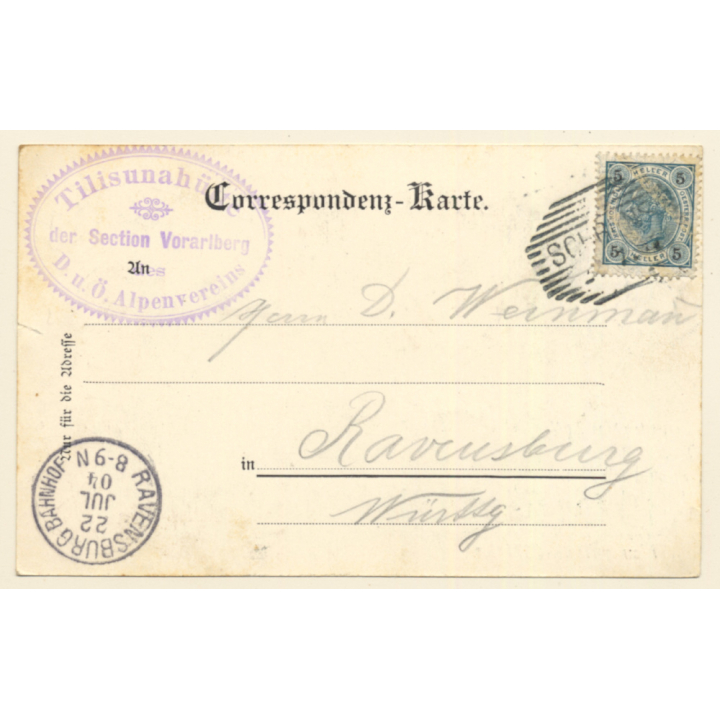 Tilisunahütte
der Section Vorarlberg
des
D. u. Ö. Alpenvereins
Correspondenz-Karte.
5 HELLER 5
5 HELLER 5
An
Herrn D. Weinmann
Nur für die Adresse
in Ravensburg
Württbg.
RAVENSBURG BAHNHOF
22
JUL
04
8-9N